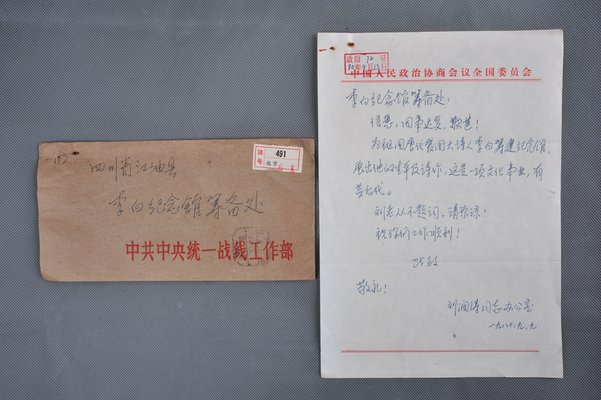 四川省江油县
李白纪念馆筹备处
中共中央统一战线工作部
挂
号
491
北京
收信 72 号
中国人民政治协商会议全国委员会
李白纪念馆筹备处:
信悉,因事迟复,歉甚!
为祖国唐代爱国大诗人李白筹建纪念馆,
展出他的生平及诗作,这是一项文化事业,有
益后代。
刘老从不题词,请原谅!
祝你们工作顺利!
此致
敬礼!
刘澜涛同志办公室
一九八〇、九、九